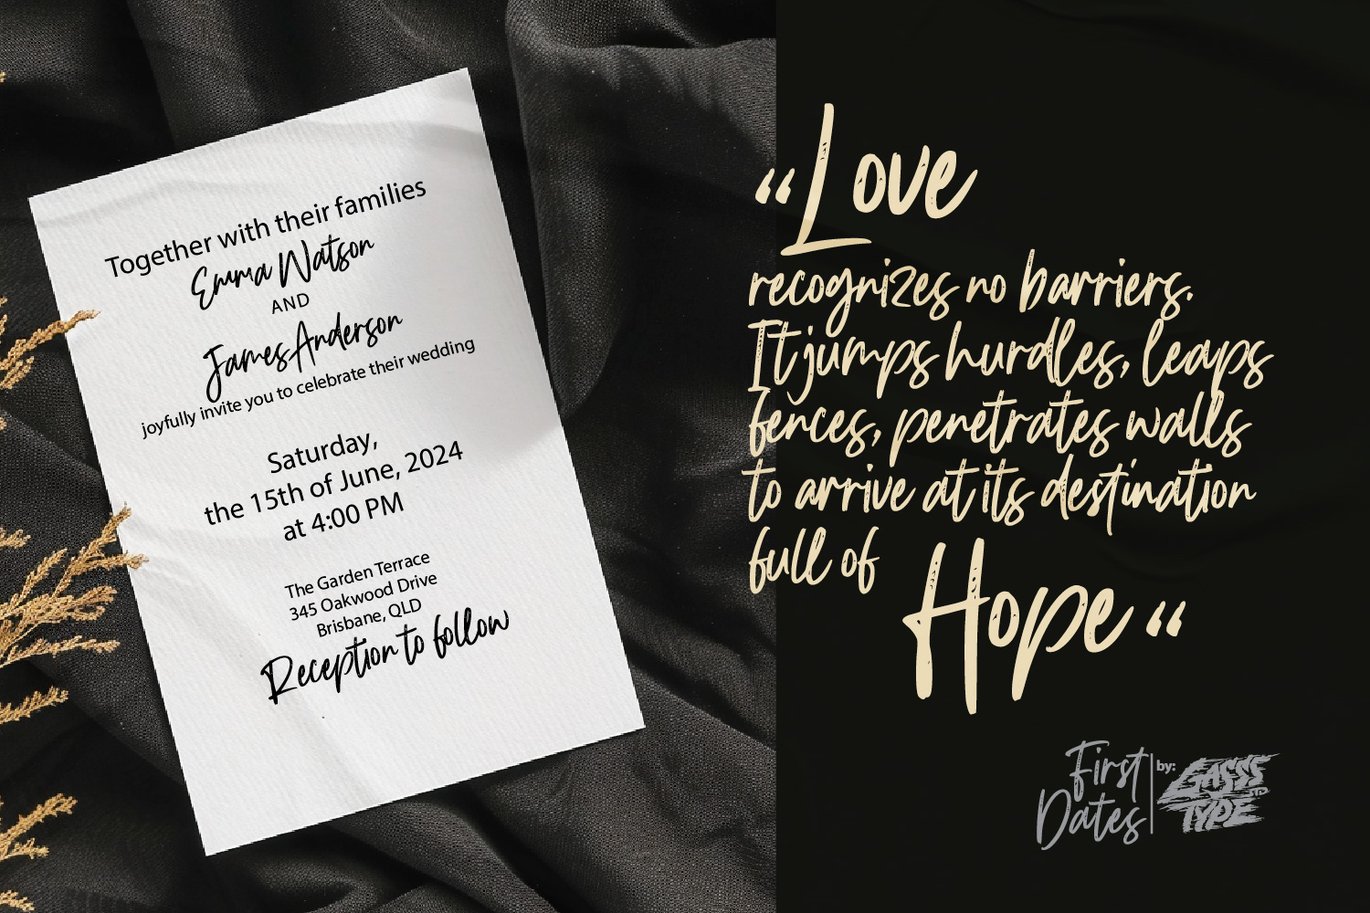 Together with their families
Emma Watson
AND
James Anderson
joyfully invite you to celebrate their wedding
Saturday,
the 15th of June, 2024
at 4:00 PM
The Garden Terrace
345 Oakwood Drive
Brisbane, QLD
Reception to follow
“Love
recognizes no barriers.
It jumps hurdles, leaps
fences, penetrates walls
to arrive at its destination
full of
Hope“
First
Dates
by:
GASSS
STD
TYPE